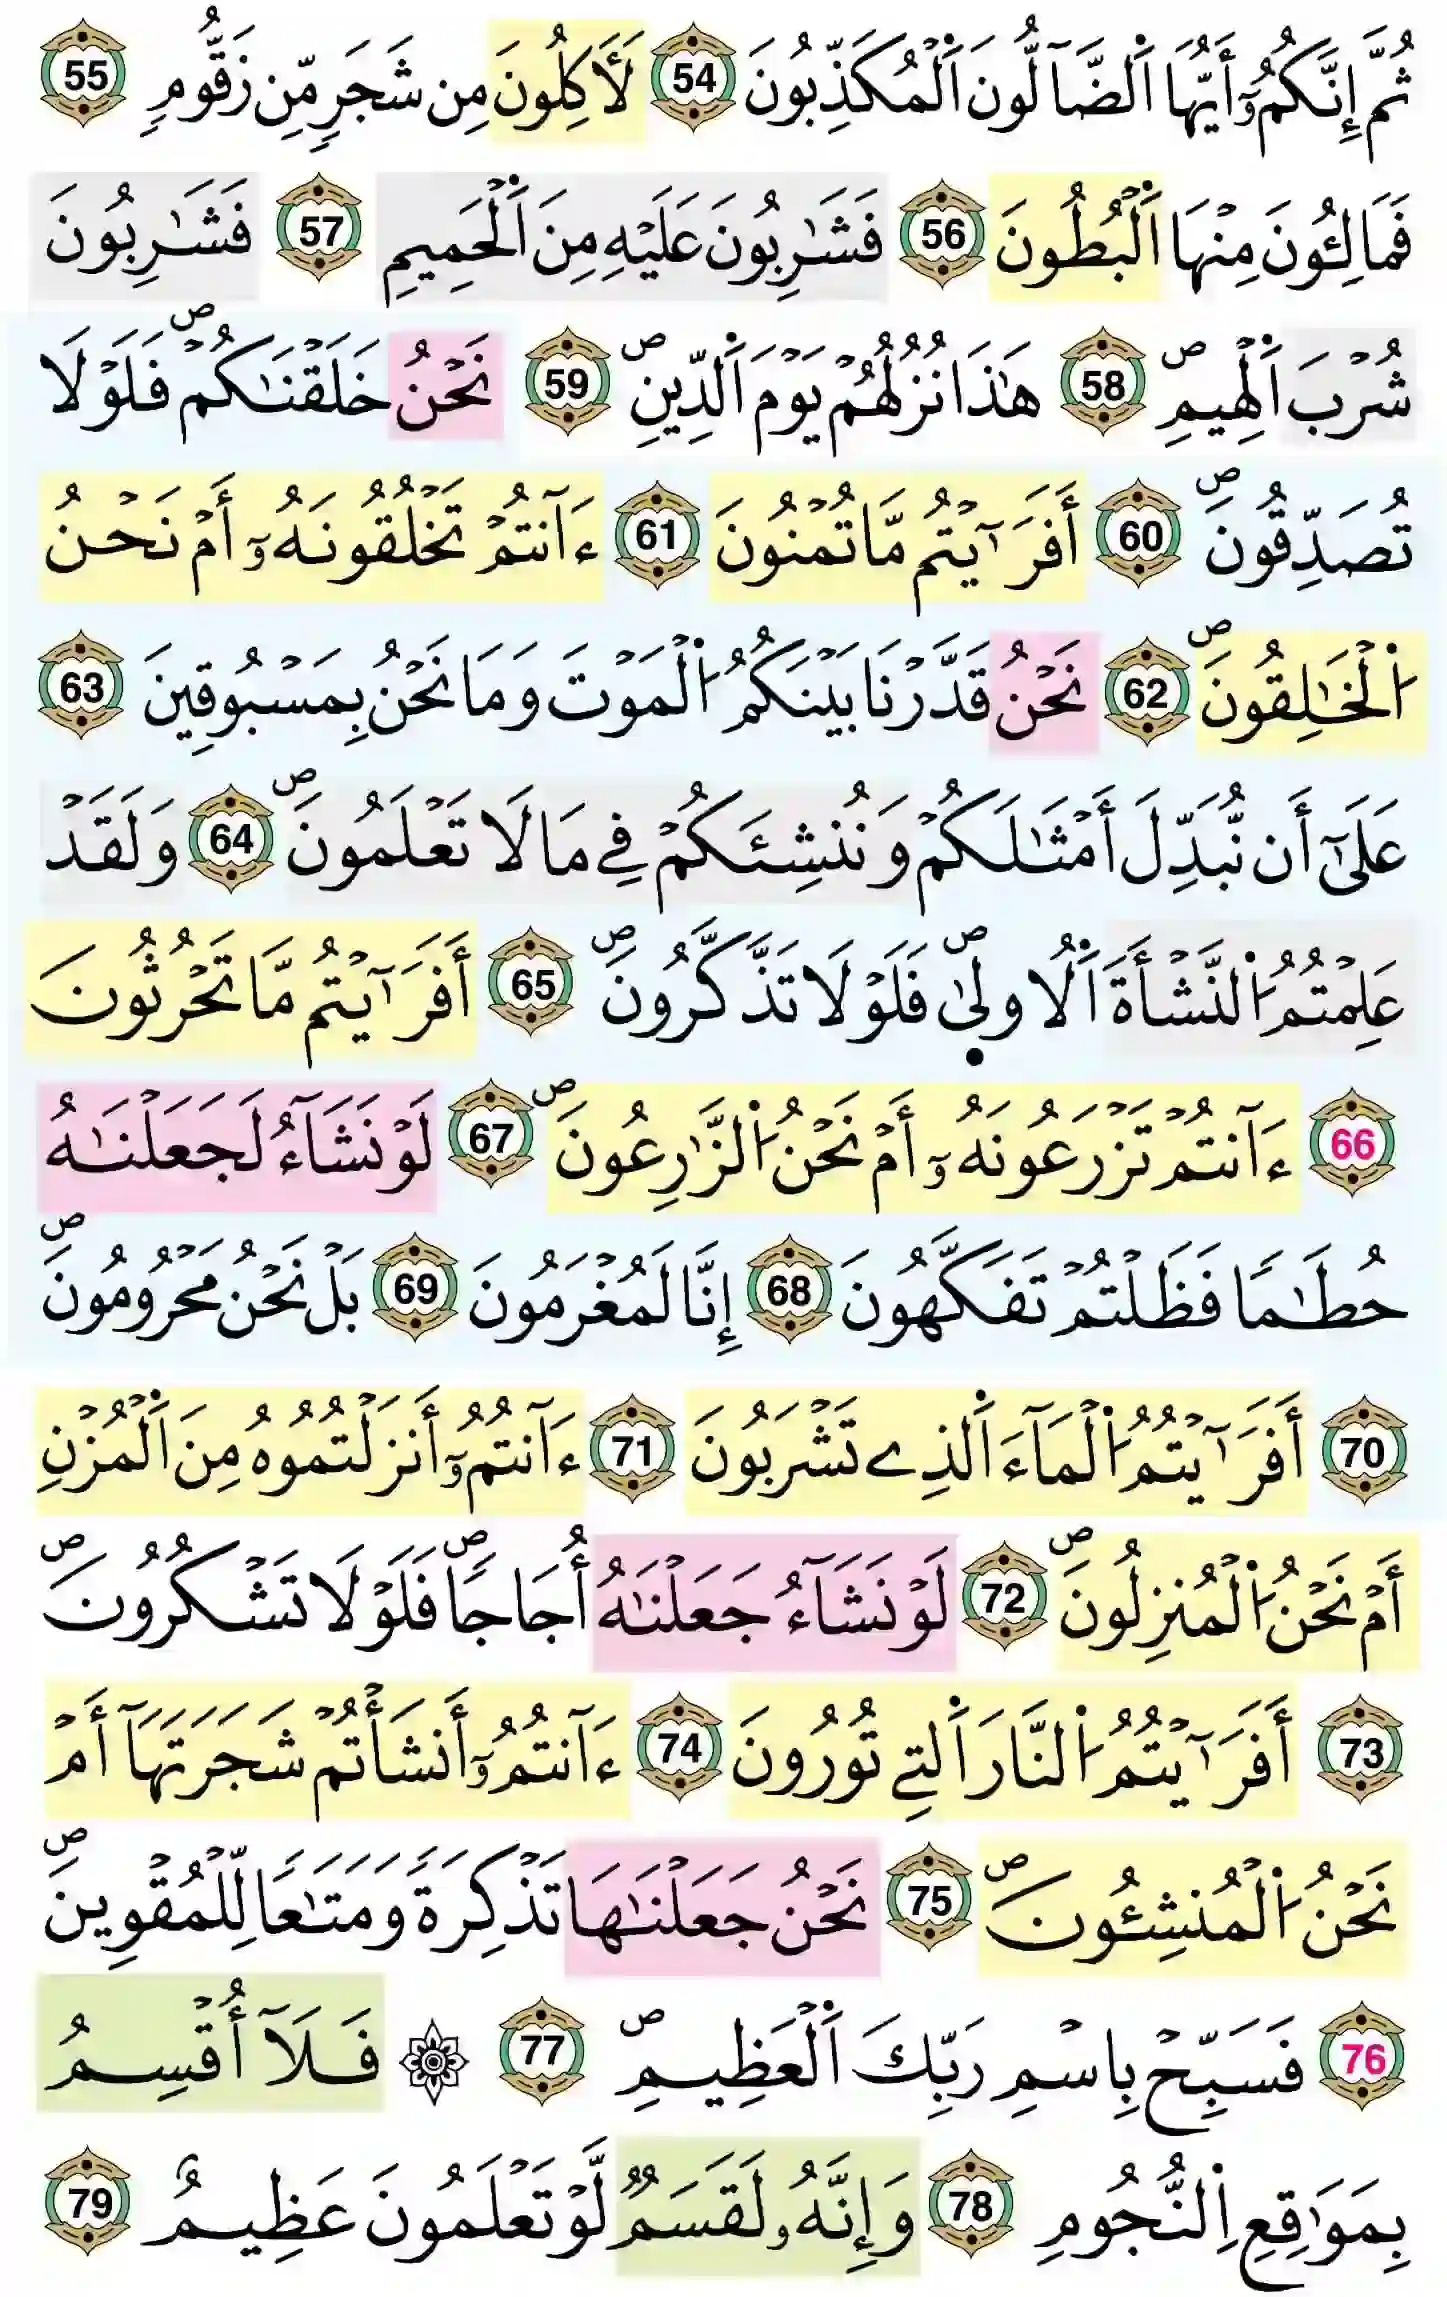 ثُمَّ إِنَّكُمُۥٓ أَيُّهَا اَ۬لضَّآلُّونَ اَ۬لْمُكَذِّبُونَ 54 لَأٓكِلُونَ مِن شَجَرٖ مِّن زَقُّومٖ 55
فَمَالِـُٔونَ مِنْهَا اَ۬لْبُطُونَ 56 فَشَٰرِبُونَ عَلَيْهِ مِنَ اَ۬لْحَمِيمِ 57 فَشَٰرِبُونَ
شُرْبَ اَ۬لْهِيمِۖ 58 هَٰذَا نُزُلُهُمْ يَوْمَ اَ۬لدِّينِۖ 59 نَحْنُ خَلَقْنَٰكُمْۖ فَلَوْلَا
تُصَدِّقُونَۖ 60 أَفَرَٰٓيْتُم مَّا تُمْنُونَ 61 ءَآنتُمْ تَخْلُقُونَهُۥٓ أَمْ نَحْنُ
اُ۬لْخَٰلِقُونَۖ 62 نَحْنُ قَدَّرْنَا بَيْنَكُمُ اُ۬لْمَوْتَ وَمَا نَحْنُ بِمَسْبُوقِينَ 63
عَلَىٰٓ أَن نُّبَدِّلَ أَمْثَٰلَكُمْ وَنُنشِئَكُمْ فِے مَا لَا تَعْلَمُونَۖ 64 وَلَقَدْ
عَلِمْتُمُ اُ۬لنَّشْأَةَ اَ۬لُاولَىٰۖ فَلَوْلَا تَذَّكَّرُونَۖ 65 أَفَرَٰٓيْتُم مَّا تَحْرُثُونَ
66 ءَآنتُمْ تَزْرَعُونَهُۥٓ أَمْ نَحْنُ اُ۬لزَّٰرِعُونَۖ 67 لَوْ نَشَآءُ لَجَعَلْنَٰهُ
حُطَٰماٗ فَظَلْتُمْ تَفَكَّهُونَ 68 إِنَّا لَمُغْرَمُونَ 69 بَلْ نَحْنُ مَحْرُومُونَۖ
70 أَفَرَٰٓيْتُمُ اُ۬لْمَآءَ اَ۬لذِے تَشْرَبُونَ 71 ءَآنتُمُۥٓ أَنزَلْتُمُوهُ مِنَ اَ۬لْمُزْنِ
أَمْ نَحْنُ اُ۬لْمُنزِلُونَۖ 72 لَوْ نَشَآءُ جَعَلْنَٰهُ أُجَاجاٗۖ فَلَوْلَا تَشْكُرُونَۖ
73 أَفَرَٰٓيْتُمُ اُ۬لنَّارَ اَ۬لتِے تُورُونَ 74 ءَآنتُمُۥٓ أَنشَأْتُمْ شَجَرَتَهَآ أَمْ
نَحْنُ اُ۬لْمُنشِـُٔونَۖ 75 نَحْنُ جَعَلْنَٰهَا تَذْكِرَةٗ وَمَتَٰعاٗ لِّلْمُقْوِينَۖ
76 فَسَبِّحْ بِاسْمِ رَبِّكَ اَ۬لْعَظِيمِۖ 77 ۞ فَلَآ أُقْسِمُ
بِمَوَٰقِعِ اِ۬لنُّجُومِ 78 وَإِنَّهُۥ لَقَسَمٞ لَّوْ تَعْلَمُونَ عَظِيمٌ 79